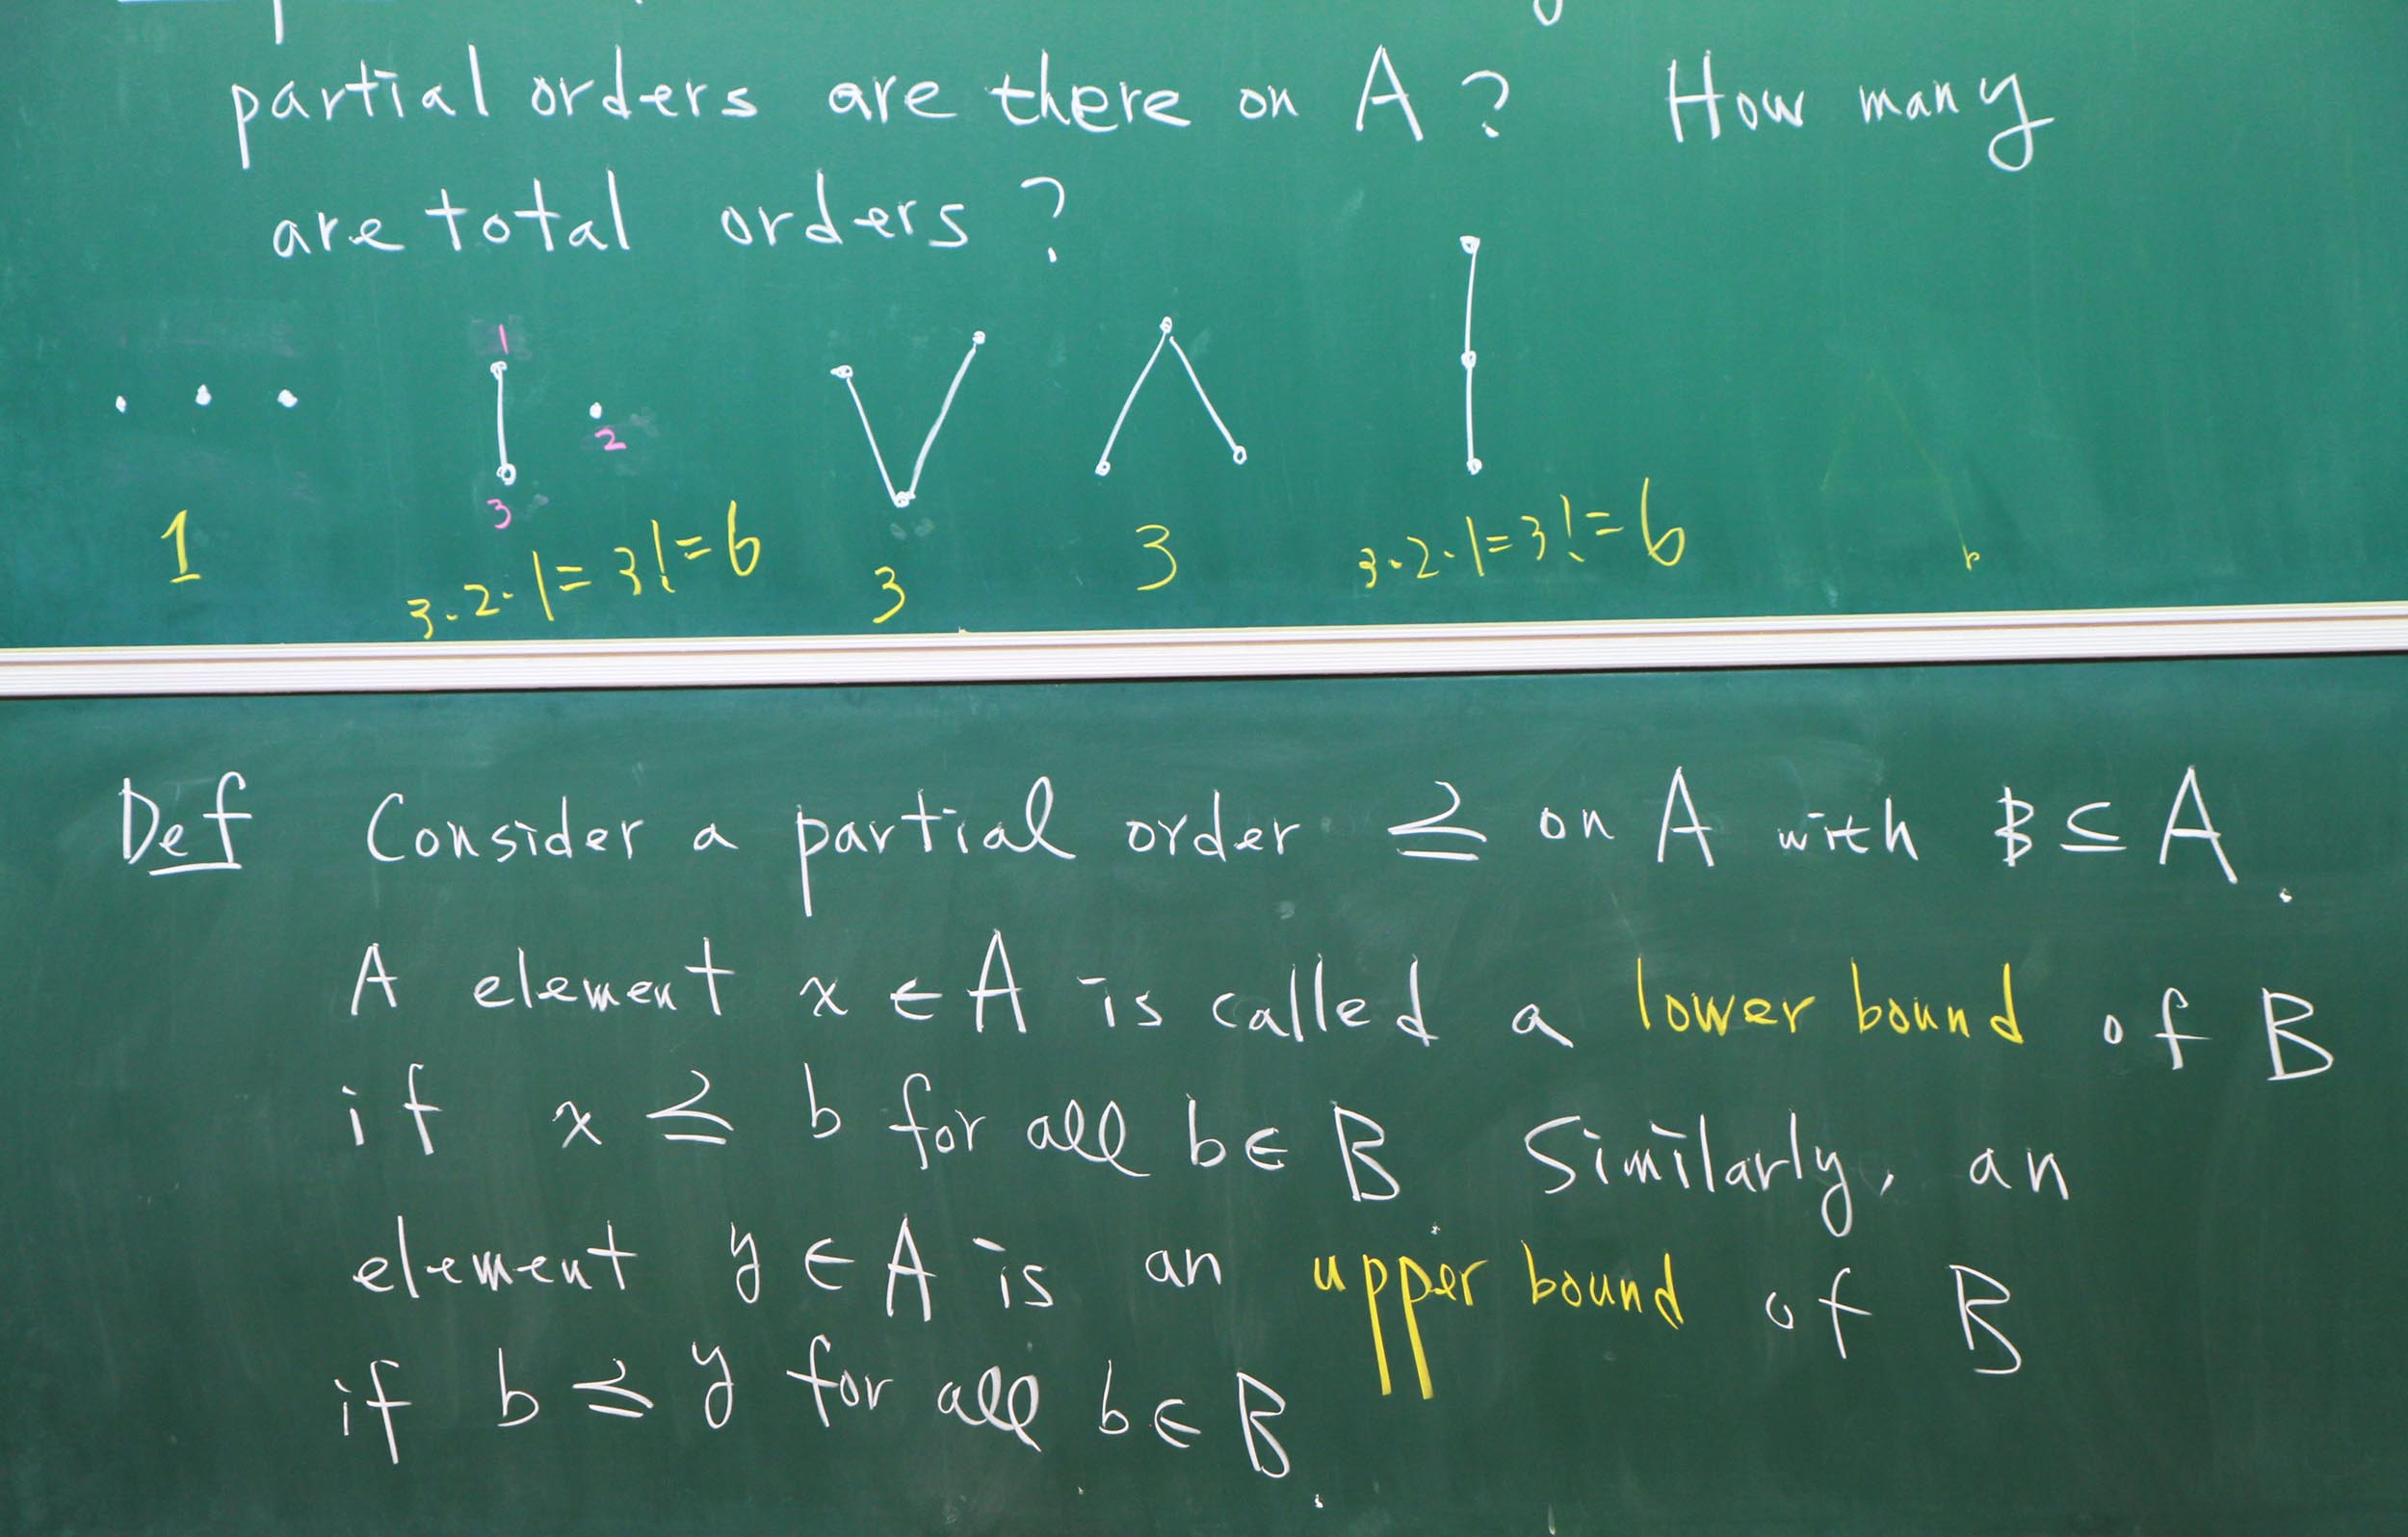 partial orders are there on A? How many
are total orders?
1
2
3
1 3·2·1=3!=6 3 3 3·2·1=3!=6
Def Consider a partial order ⪯ on A with B ⊆ A.
A element x ∈ A is called a lower bound of B
if x ⪯ b for all b ∈ B Similarly, an
element y ∈ A is an upper bound of B
if b ⪯ y for all b ∈ B.